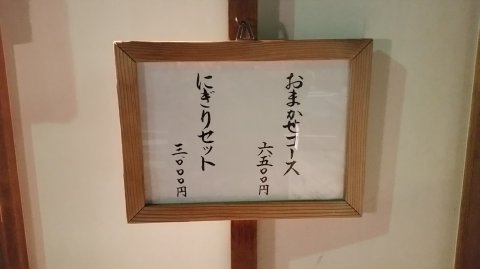 おまかせコース
六五〇〇円
にぎりセット
三〇〇〇円